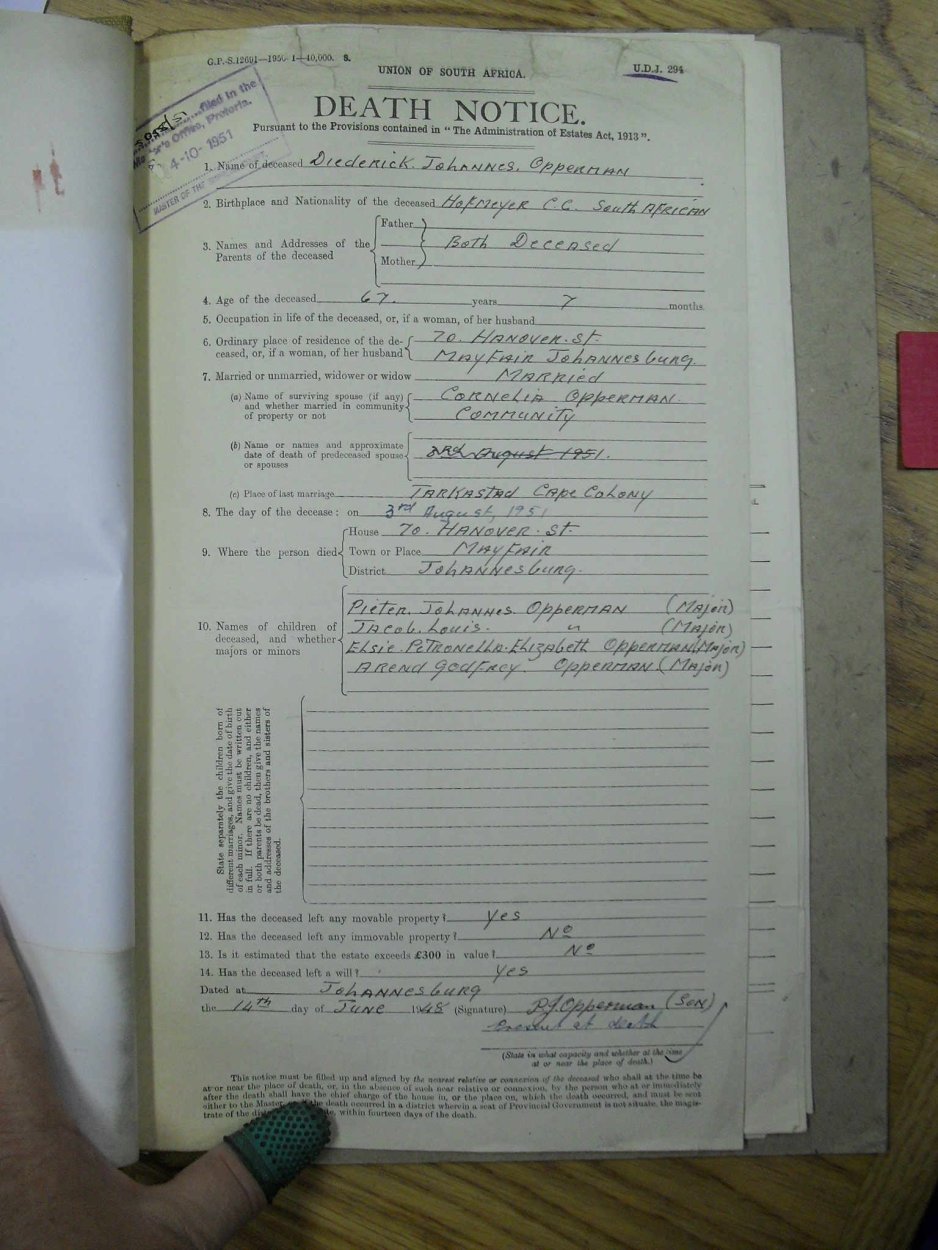 G.P.-S.12691—1950 1—40,000. S.
UNION OF SOUTH AFRICA.
U.D.J. 294
DEATH NOTICE.
Pursuant to the Provisions contained in “ The Administration of Estates Act, 1913 ”.
filed in the
Office, Pretoria.
4-10-1951
MASTER OF THE
1. Name of deceased Diederick. Johannes. Opperman
2. Birthplace and Nationality of the deceased Hofmeyer C.C. South African
3. Names and Addresses of the Parents of the deceased
Father
Both Deceased
Mother
4. Age of the deceased 67. years 7 months.
5. Occupation in life of the deceased, or, if a woman, of her husband
6. Ordinary place of residence of the de- 70. Hanover. St.
ceased, or, if a woman, of her husband Mayfair Johannesburg.
7. Married or unmarried, widower or widow Married
(a) Name of surviving spouse (if any) Cornelia Opperman.
and whether married in community
of property or not Community
(b) Name or names and approximate
date of death of predeceased spouse 3rd August 1951.
or spouses
(c) Place of last marriage Tarkastad Cape Colony
8. The day of the decease : on 3rd August, 1951
9. Where the person died
House 70. Hanover. St.
Town or Place Mayfair
District Johannesburg.
10. Names of children of
deceased, and whether
majors or minors
Pieter. Johannes. Opperman (Major)
Jacob. Louis. " (Major)
Elsie. Petronella. Elizabeth Opperman (Major)
Arend Godfrey Opperman (Major)
State separately the children born of
different marriages, and give the date of birth
of each minor. Names must be written out
in full. If there are no children, and either
or both parents be dead, then give the names
and addresses of the brothers and sisters of
the deceased.
11. Has the deceased left any movable property ? Yes
12. Has the deceased left any immovable property ? No
13. Is it estimated that the estate exceeds £300 in value ? No
14. Has the deceased left a will ? Yes
Dated at Johannesburg
the 14th day of June 1948 (Signature) P.J. Opperman (Son)
Present at death
(State in what capacity and whether at the time
at or near the place of death.)
This notice must be filled up and signed by the nearest relative or connexion of the deceased who shall at the time be
at or near the place of death, or, in the absence of such near relative or connexion, by the person who at or immediately
after the death shall have the chief charge of the house in, or the place on, which the death occurred, and must be sent
either to the Master, the death occurred in a district wherein a seat of Provincial Government is not situate, the magis-
trate of the within fourteen days of the death.